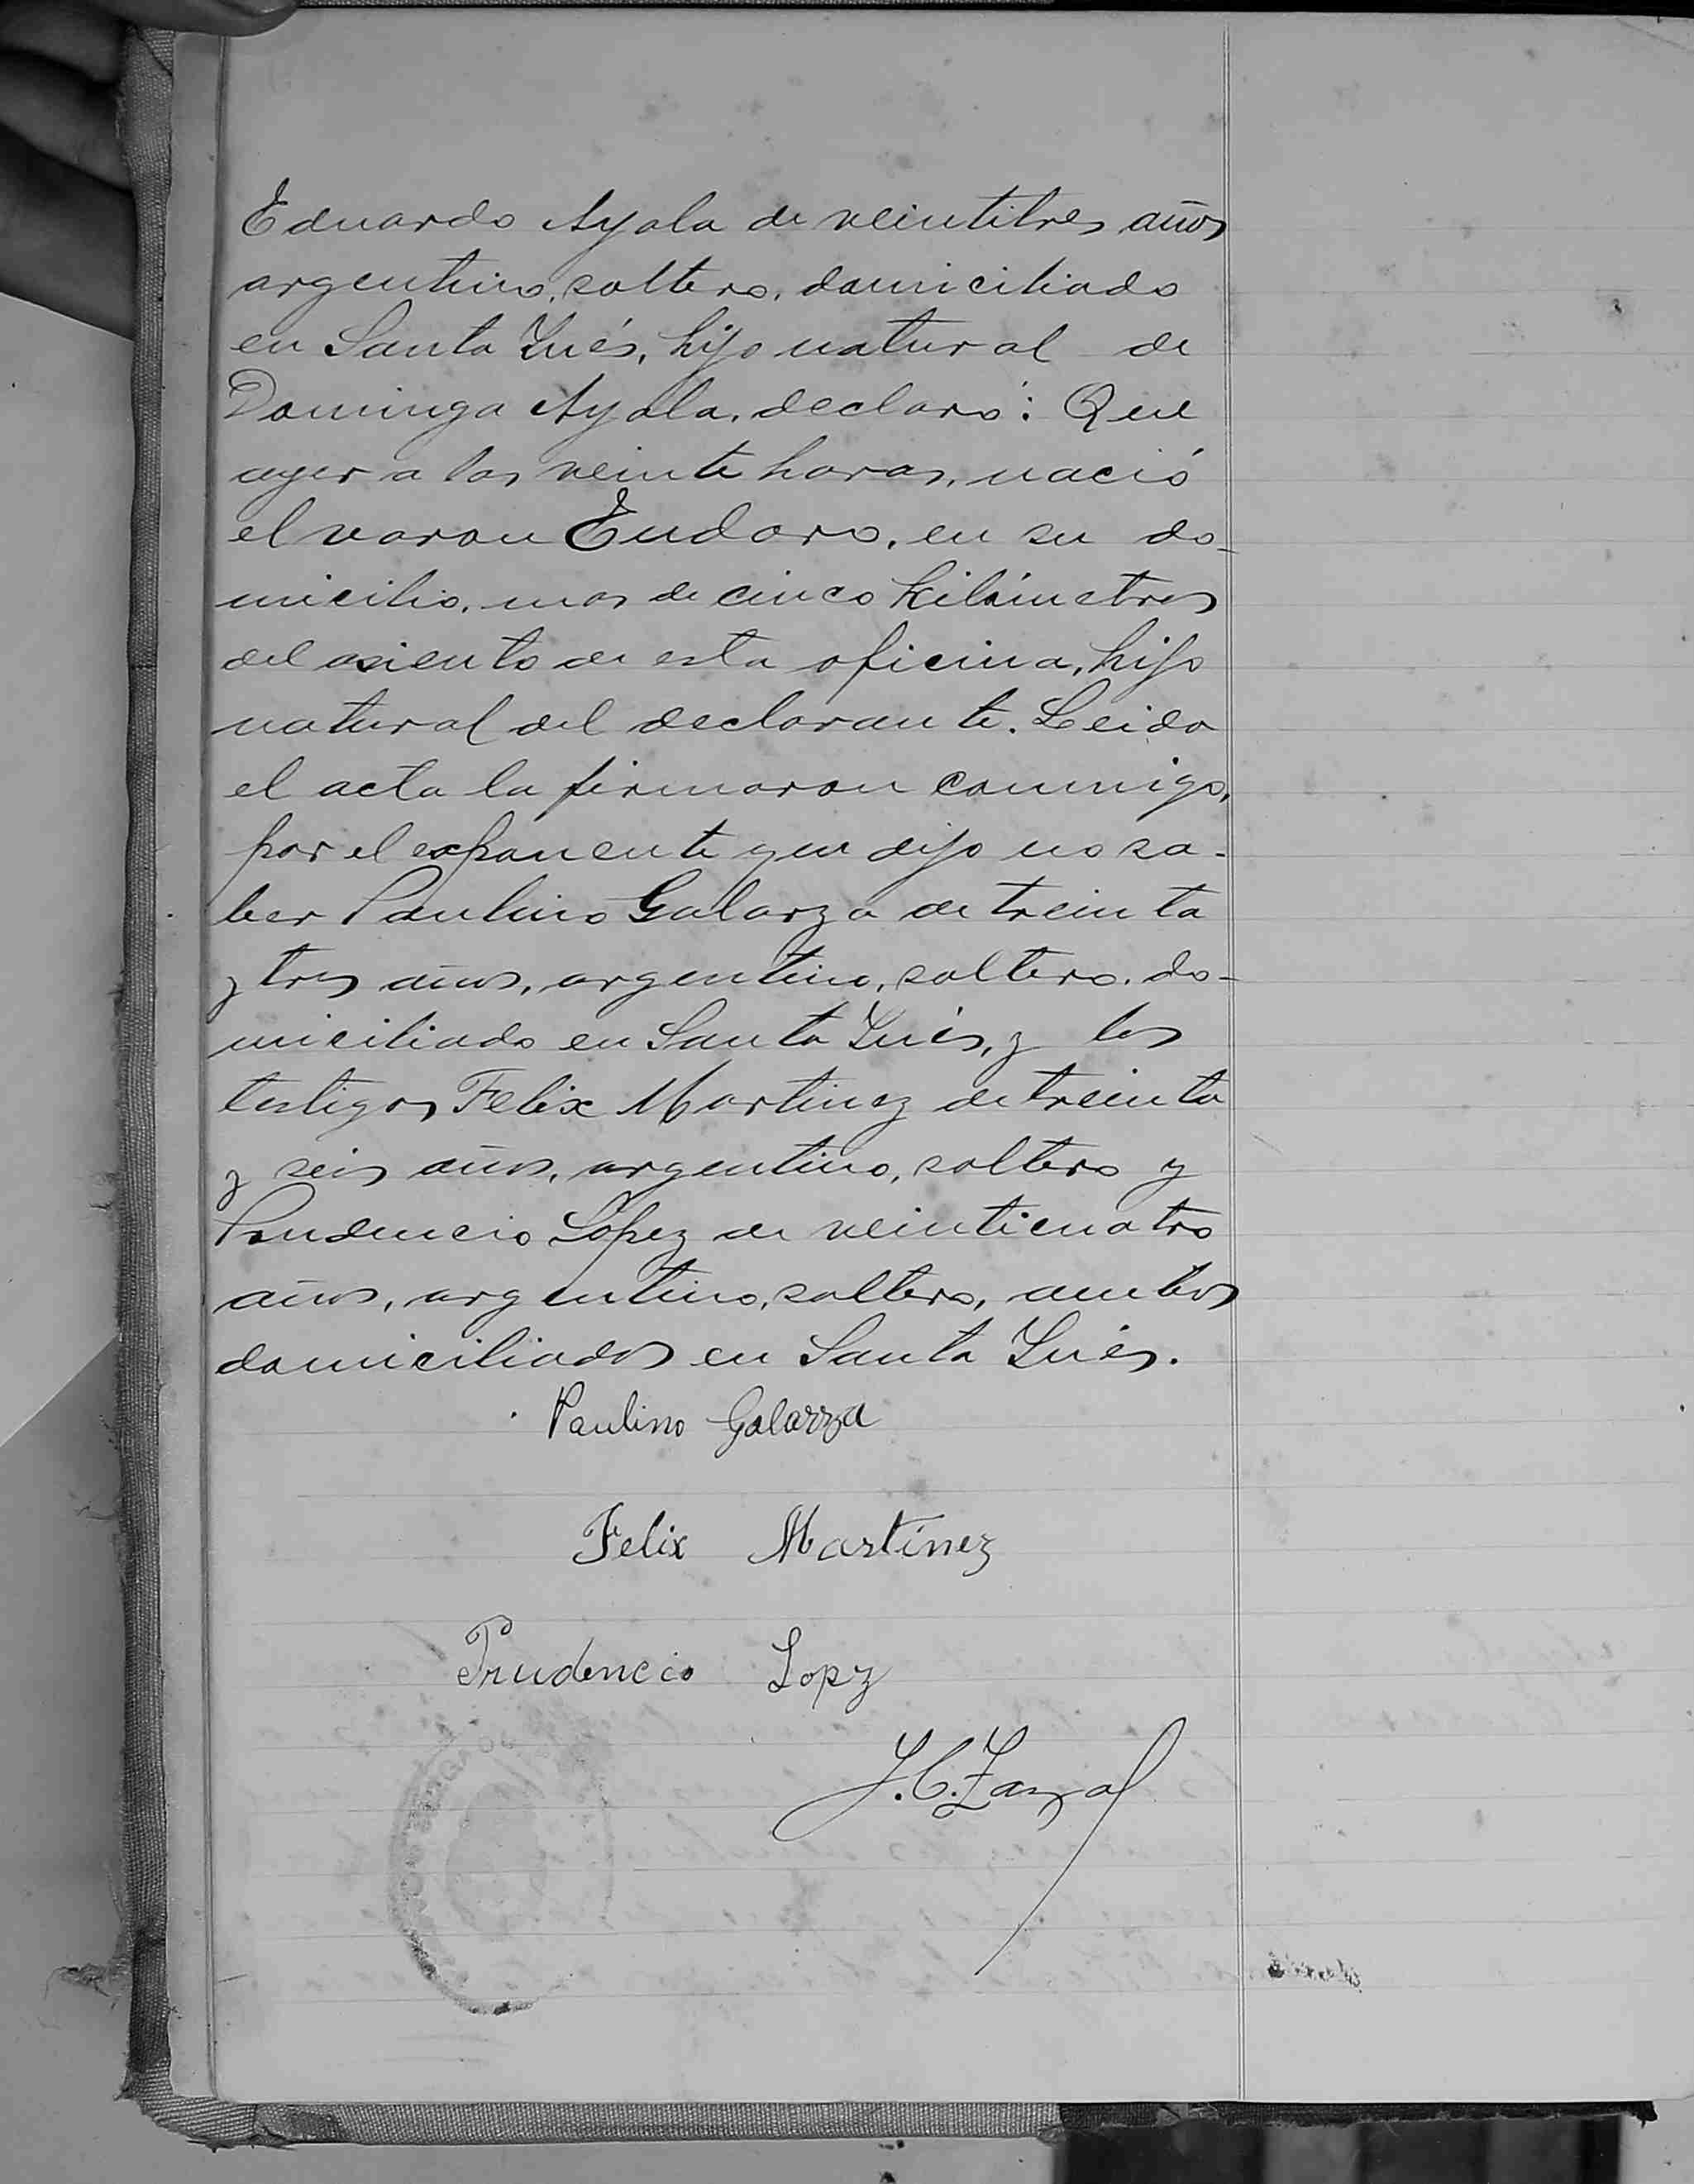 Eduardo Ayala de veintitres años
argentino, soltero, domiciliado
en Santa Inés, hijo natural de
Dominga Ayala, declaró: Que
ayer a las veinte horas, nació
el varon Eudoro, en su do-
micilio, mas de cinco kilómetros
del asiento de esta oficina, hijo
natural del declarante. Leida
el acta la firmaron conmigo,
por el exponente que dijo no sa-
ber Paulino Galarza de treinta
y tres años, argentino, soltero, do-
miciliado en Santa Inés, y los
testigos Felix Martinez de treinta
y seis años, argentino, soltero y
Prudencio López de veinticuatro
años, argentino, soltero, ambos
domiciliados en Santa Inés.
Paulino Galarza
Felix Martínez
Prudencio Lopz